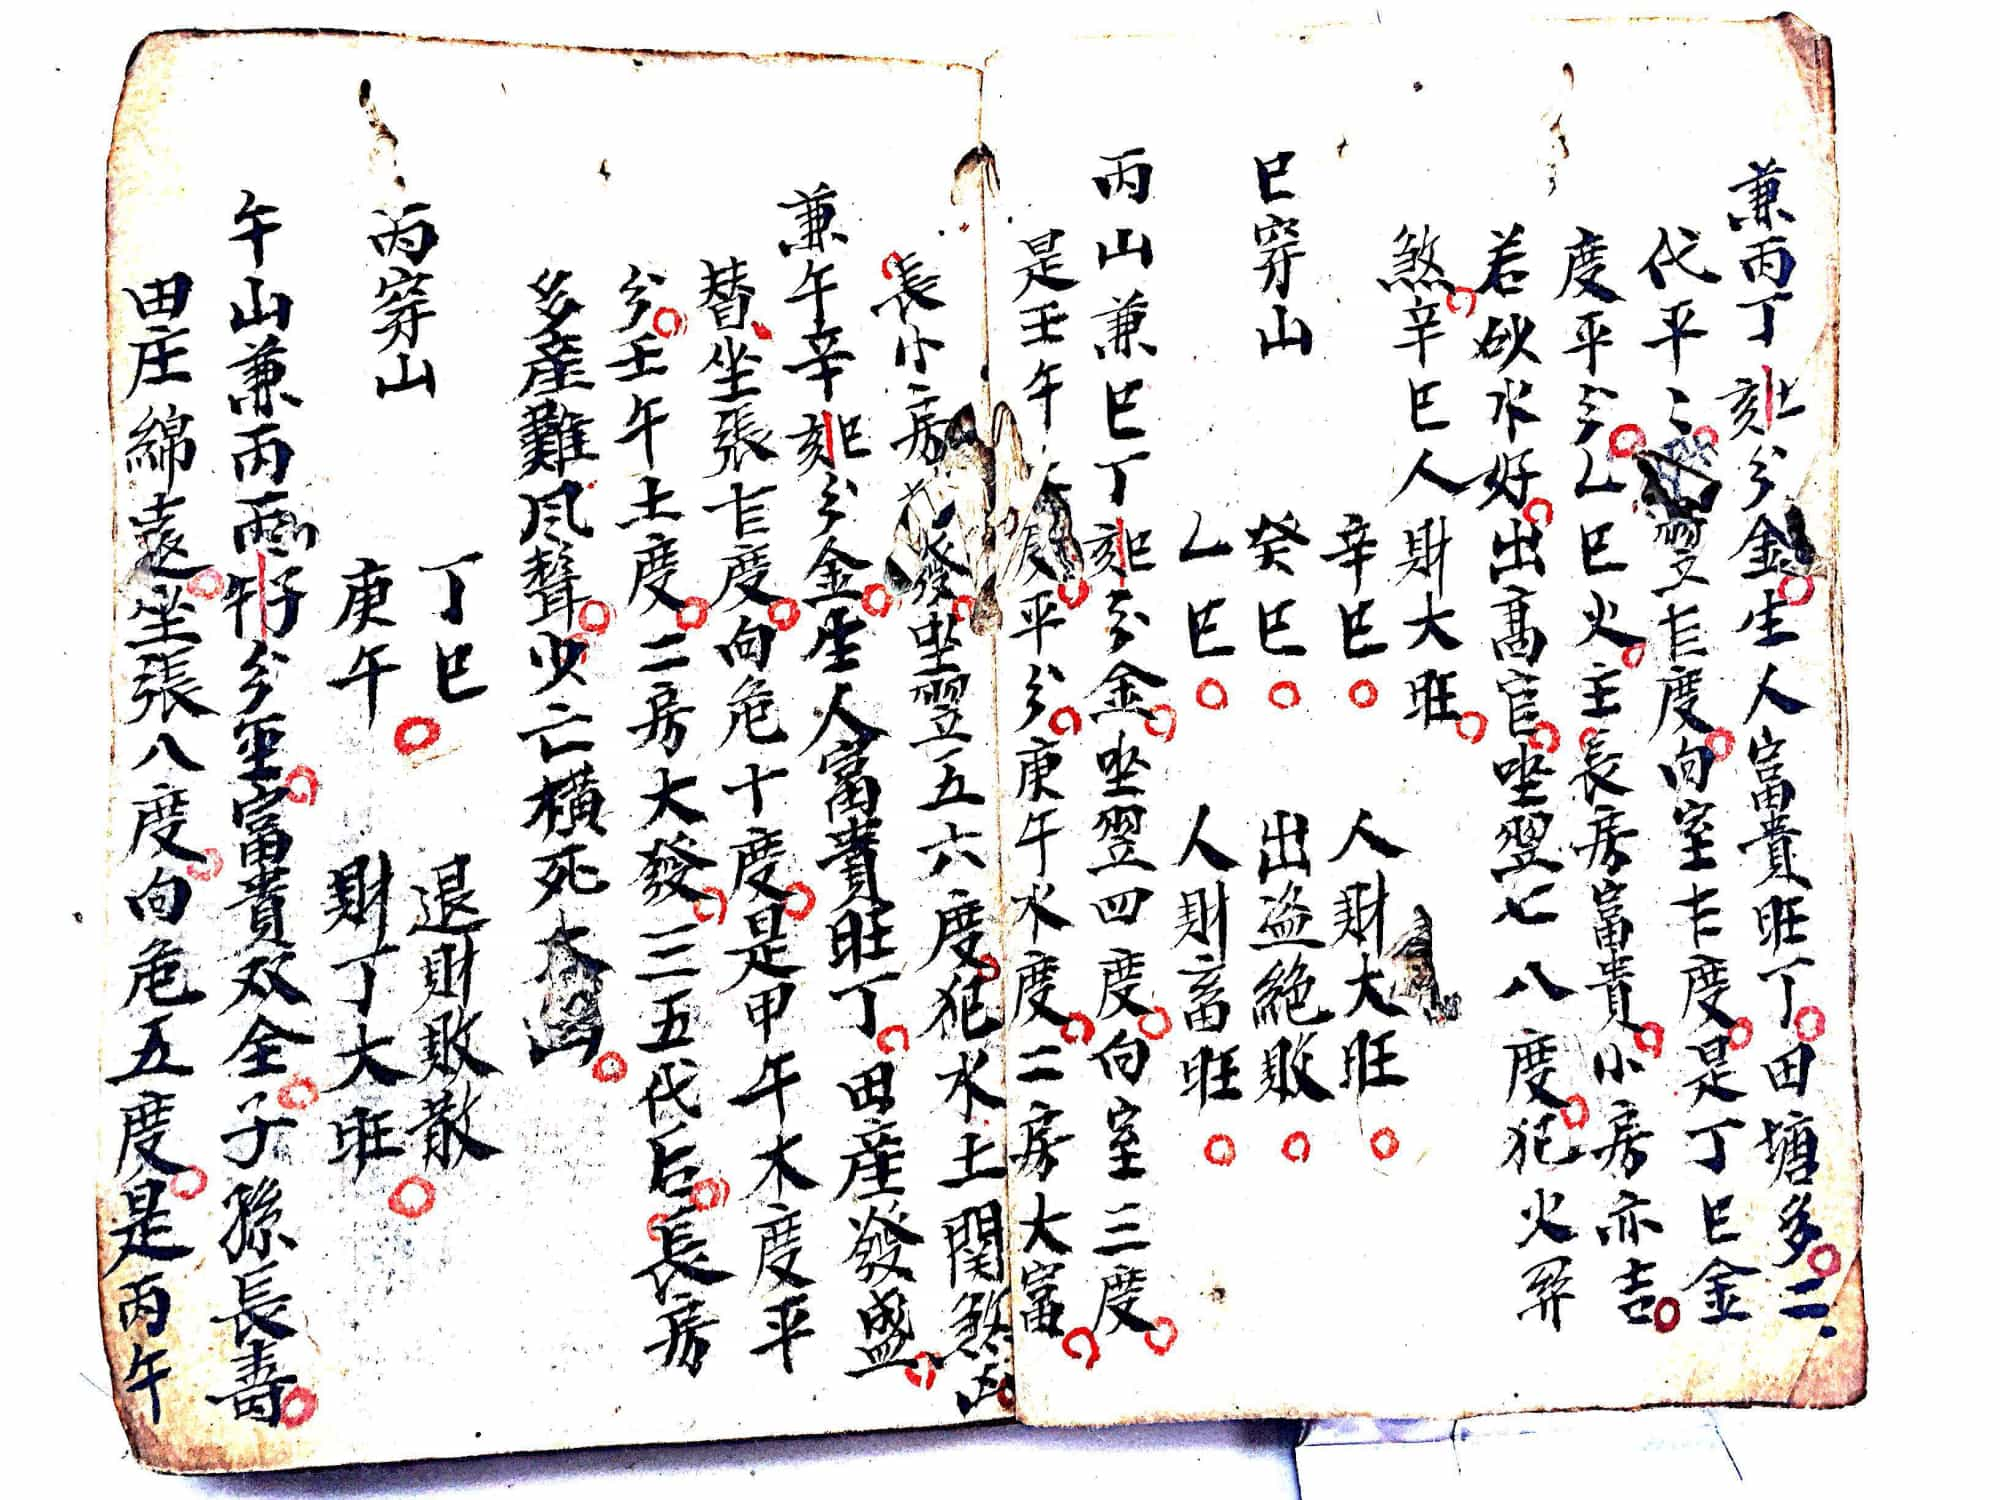 兼丙丁刻上分金生人富貴旺丁田塘多二
代平正翌七度向室七度是丁巳金
度平分乙巳火主長房富貴小房亦吉
若砍水好出高官坐翌七八度犯火羿
煞辛巳人財大旺
辛巳 人財大旺
巳穿山 癸巳 出盗絶敗
乙巳 人財畜旺
丙山兼巳丁刻巳分金坐翌四度向室三度
是壬午度平分庚午水度二房大富
長小房發坐翌五六度犯水土関煞凶
兼午辛刻巳分金生人富貴旺丁田產發盛
替坐張七度向危十度是甲午木度平
分壬午土度二房大發三五代后長房
多產難風聲少亡橫死
丁巳 退財敗散
丙穿山
庚午 財丁大旺
午山兼丙丙午子分坐富貴双全子孫長壽
田庄綿遠坐張八度向危五度是丙午